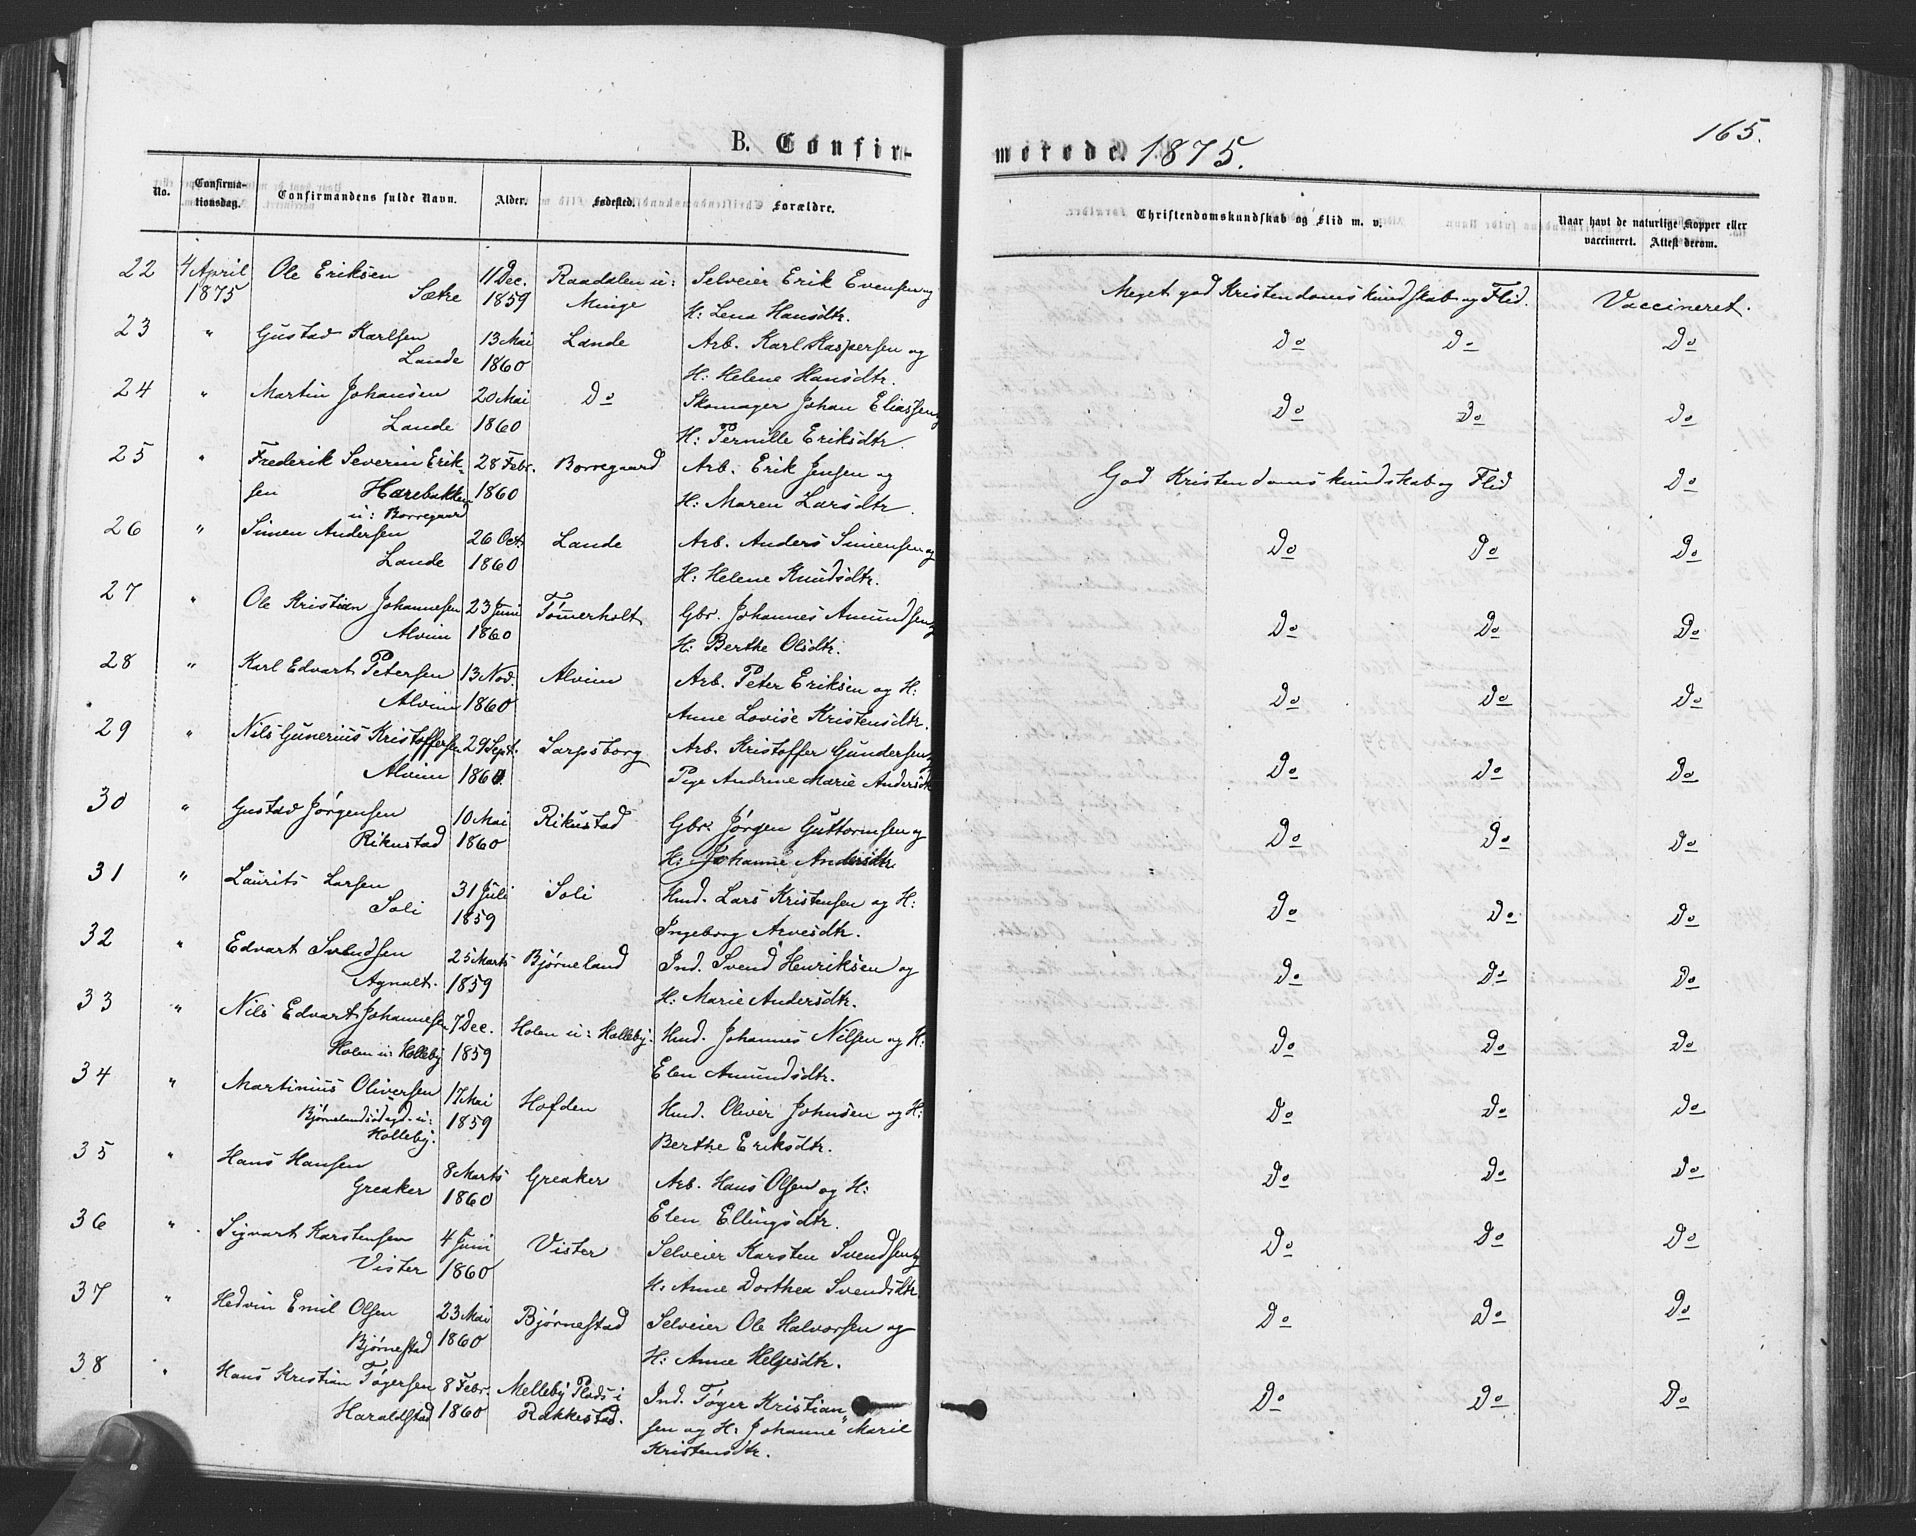 B. Confir-
No.
Confirma-
tionsdag.
Confirmandens fulde Navn.
Alder.
Fødested.
Forældre.
22 4 April Ole Eriksen 11 Dec. Raadalen u: Selveier Erik Evensen og
1875 Sætre 1859 Minge H: Lena Hansdtr.
23 " Gustav Karlsen 13 Mai Lande Arb. Karl Kaspersen og
Lande 1860 H: Helene Hansdtr.
24 " Martin Johansen 20 Mai Do Skomager Johan Eliassen og
Lande 1860 H: Pernille Eriksdtr
25 " Frederik Severin Erik- 28 Febr. Borregaard Arb. Erik Jensen og
sen Harebakken 1860 H: Maren Larsdtr.
u: Borregaard
26 " Simen Andersen 26 Oct. Lande Arb. Anders Simensen og
Lande 1860 H: Helene Knudsdtr.
27 " Ole Kristian Johannesen 23 Juni Tømerholt Gbr. Johannes Amundsen og
Alvim 1860 H: Berthe Olsdtr.
28 " Karl Edvart Petersen 13 Nov. Alvim Arb. Peter Eriksen og H:
Alvim 1860 Anne Lovise Kristensdtr.
29 " Nils Gunerius Kristoffersen 29 Sept. Sarpsborg Arb. Kristoffer Gundersen og
Alvim 1860 Pige Andrine Marie Andersdtr
30 " Gustav Jørgensen 10 Mai Rikustad Gbr. Jørgen Guttormsen og
Rikustad 1860 H: Johanne Andersdtr
31 " Laurits Larsen 31 Juli Soli Hmd. Lars Kristensen og H:
Soli 1859 Ingeborg Arvesdtr.
32 " Edvart Svendsen 25 Marts Bjørneland Ind. Svend Henriksen og
Agnalt. 1859 H: Marie Andersdtr.
33 " Nils Edvart Johannesen 7 Dec. Holen u: Holleby. Hmd. Johannes Nilsen og H:
Holen u: Holleby 1859 Elen Amundsdtr.
34 " Martinius Oliversen 17 Mai Hofden Hmd. Oliver Johnsen og H:
Bjørnelandsødegd. u: 1859 Berthe Eriksdtr.
Holleby.
35 " Hans Hansen 8 Marts Greaker Arb. Hans Olsen og H:
Greaker 1860 Elen Ellingsdtr.
36 " Sigvart Karstensen 4 Juni Vister Selveier Karsten Svendsen og
Vister 1860 H: Anne Dorthea Svendsdtr
37 " Hedvin Emil Olsen 23 Mai Bjørnestad Selveier Ole Halvorsen og
Bjørnestad 1860 H: Anne Helgesdtr.
38 " Hans Kristian Tøgersen 8 Febr. Melleby Plads i Ind. Tøger Kristian
Haraldstad 1860 Rakkestad. sen og H: Johanne Marie
Kristensdtr.
165.
merede. 1875.
Christendomskundskab og Flid m. v.
Naar havt de naturlige Kopper eller
vaccineret. Attest derom.
Meget god Kristendomskundskab og Flid. Vaccineret.
Do Do Do
Do Do Do
God Kristendomskundskab og Flid Do
Do Do Do
Do Do Do
Do Do Do
Do Do Do
Do Do Do
Do Do Do
Do Do Do
Do Do Do
Do Do Do
Do Do Do
Do Do Do
Do Do Do
Do Do Do